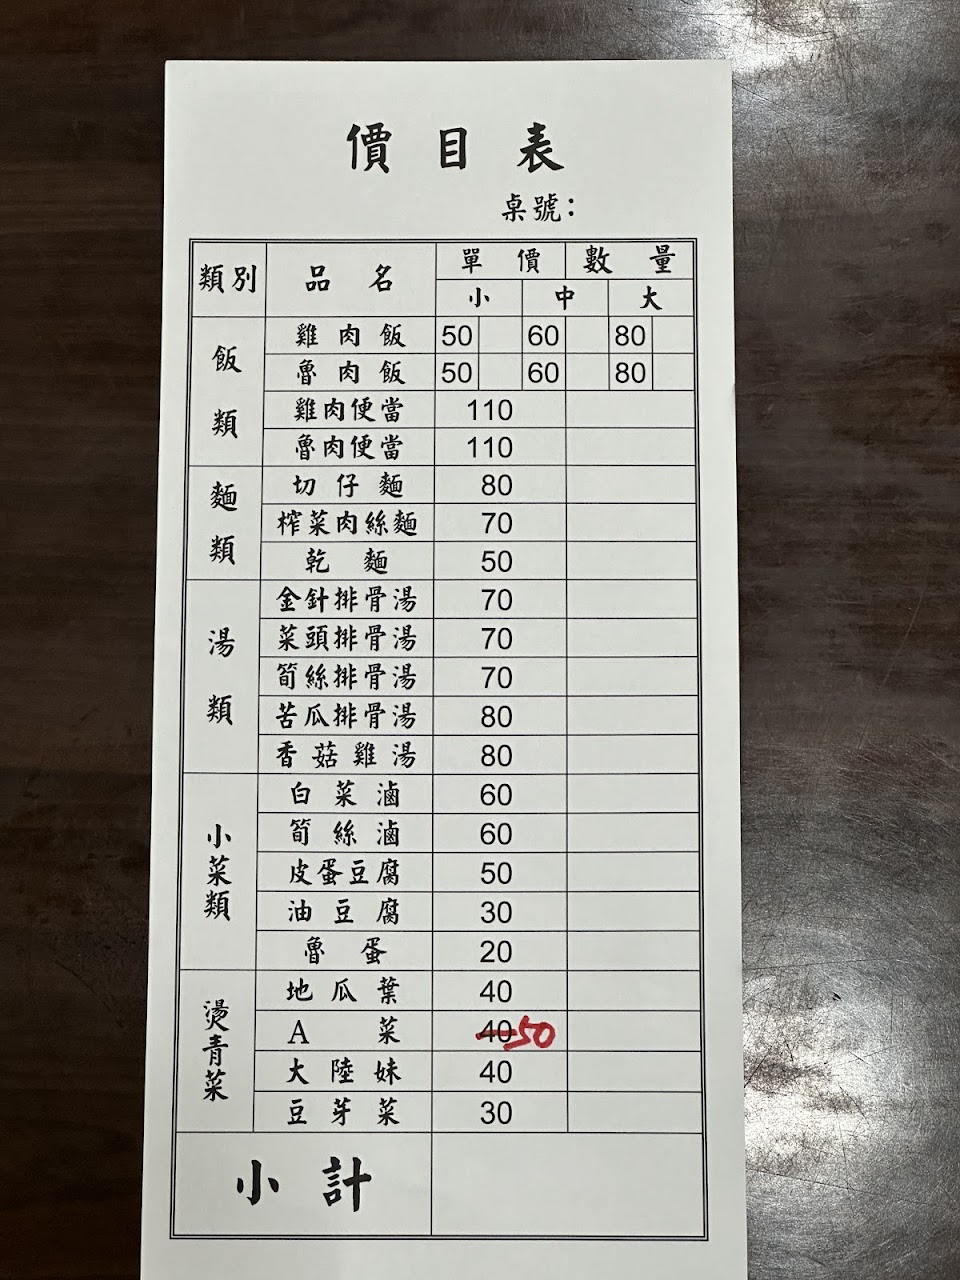 價目表
桌號：
類別 品名 單價 數量
小 中 大
飯類
雞肉飯 50 60 80
魯肉飯 50 60 80
雞肉便當 110
魯肉便當 110
麵類
切仔麵 80
榨菜肉絲麵 70
乾麵 50
湯類
金針排骨湯 70
菜頭排骨湯 70
筍絲排骨湯 70
苦瓜排骨湯 80
香菇雞湯 80
小菜類
白菜滷 60
筍絲滷 60
皮蛋豆腐 50
油豆腐 30
魯蛋 20
燙青菜
地瓜葉 40
A菜 40 50
大陸妹 40
豆芽菜 30
小計